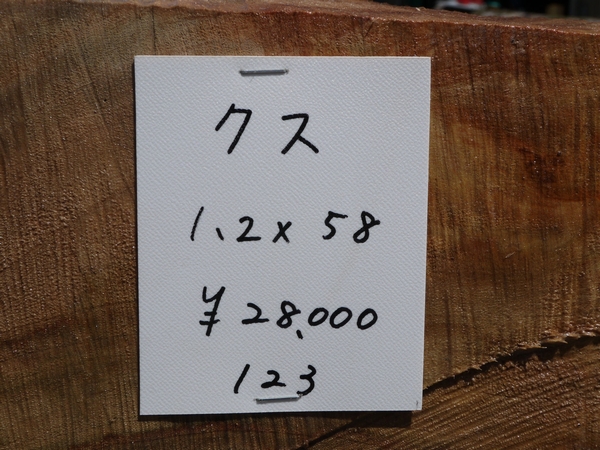 クス
1.2x 58
¥28,000
123